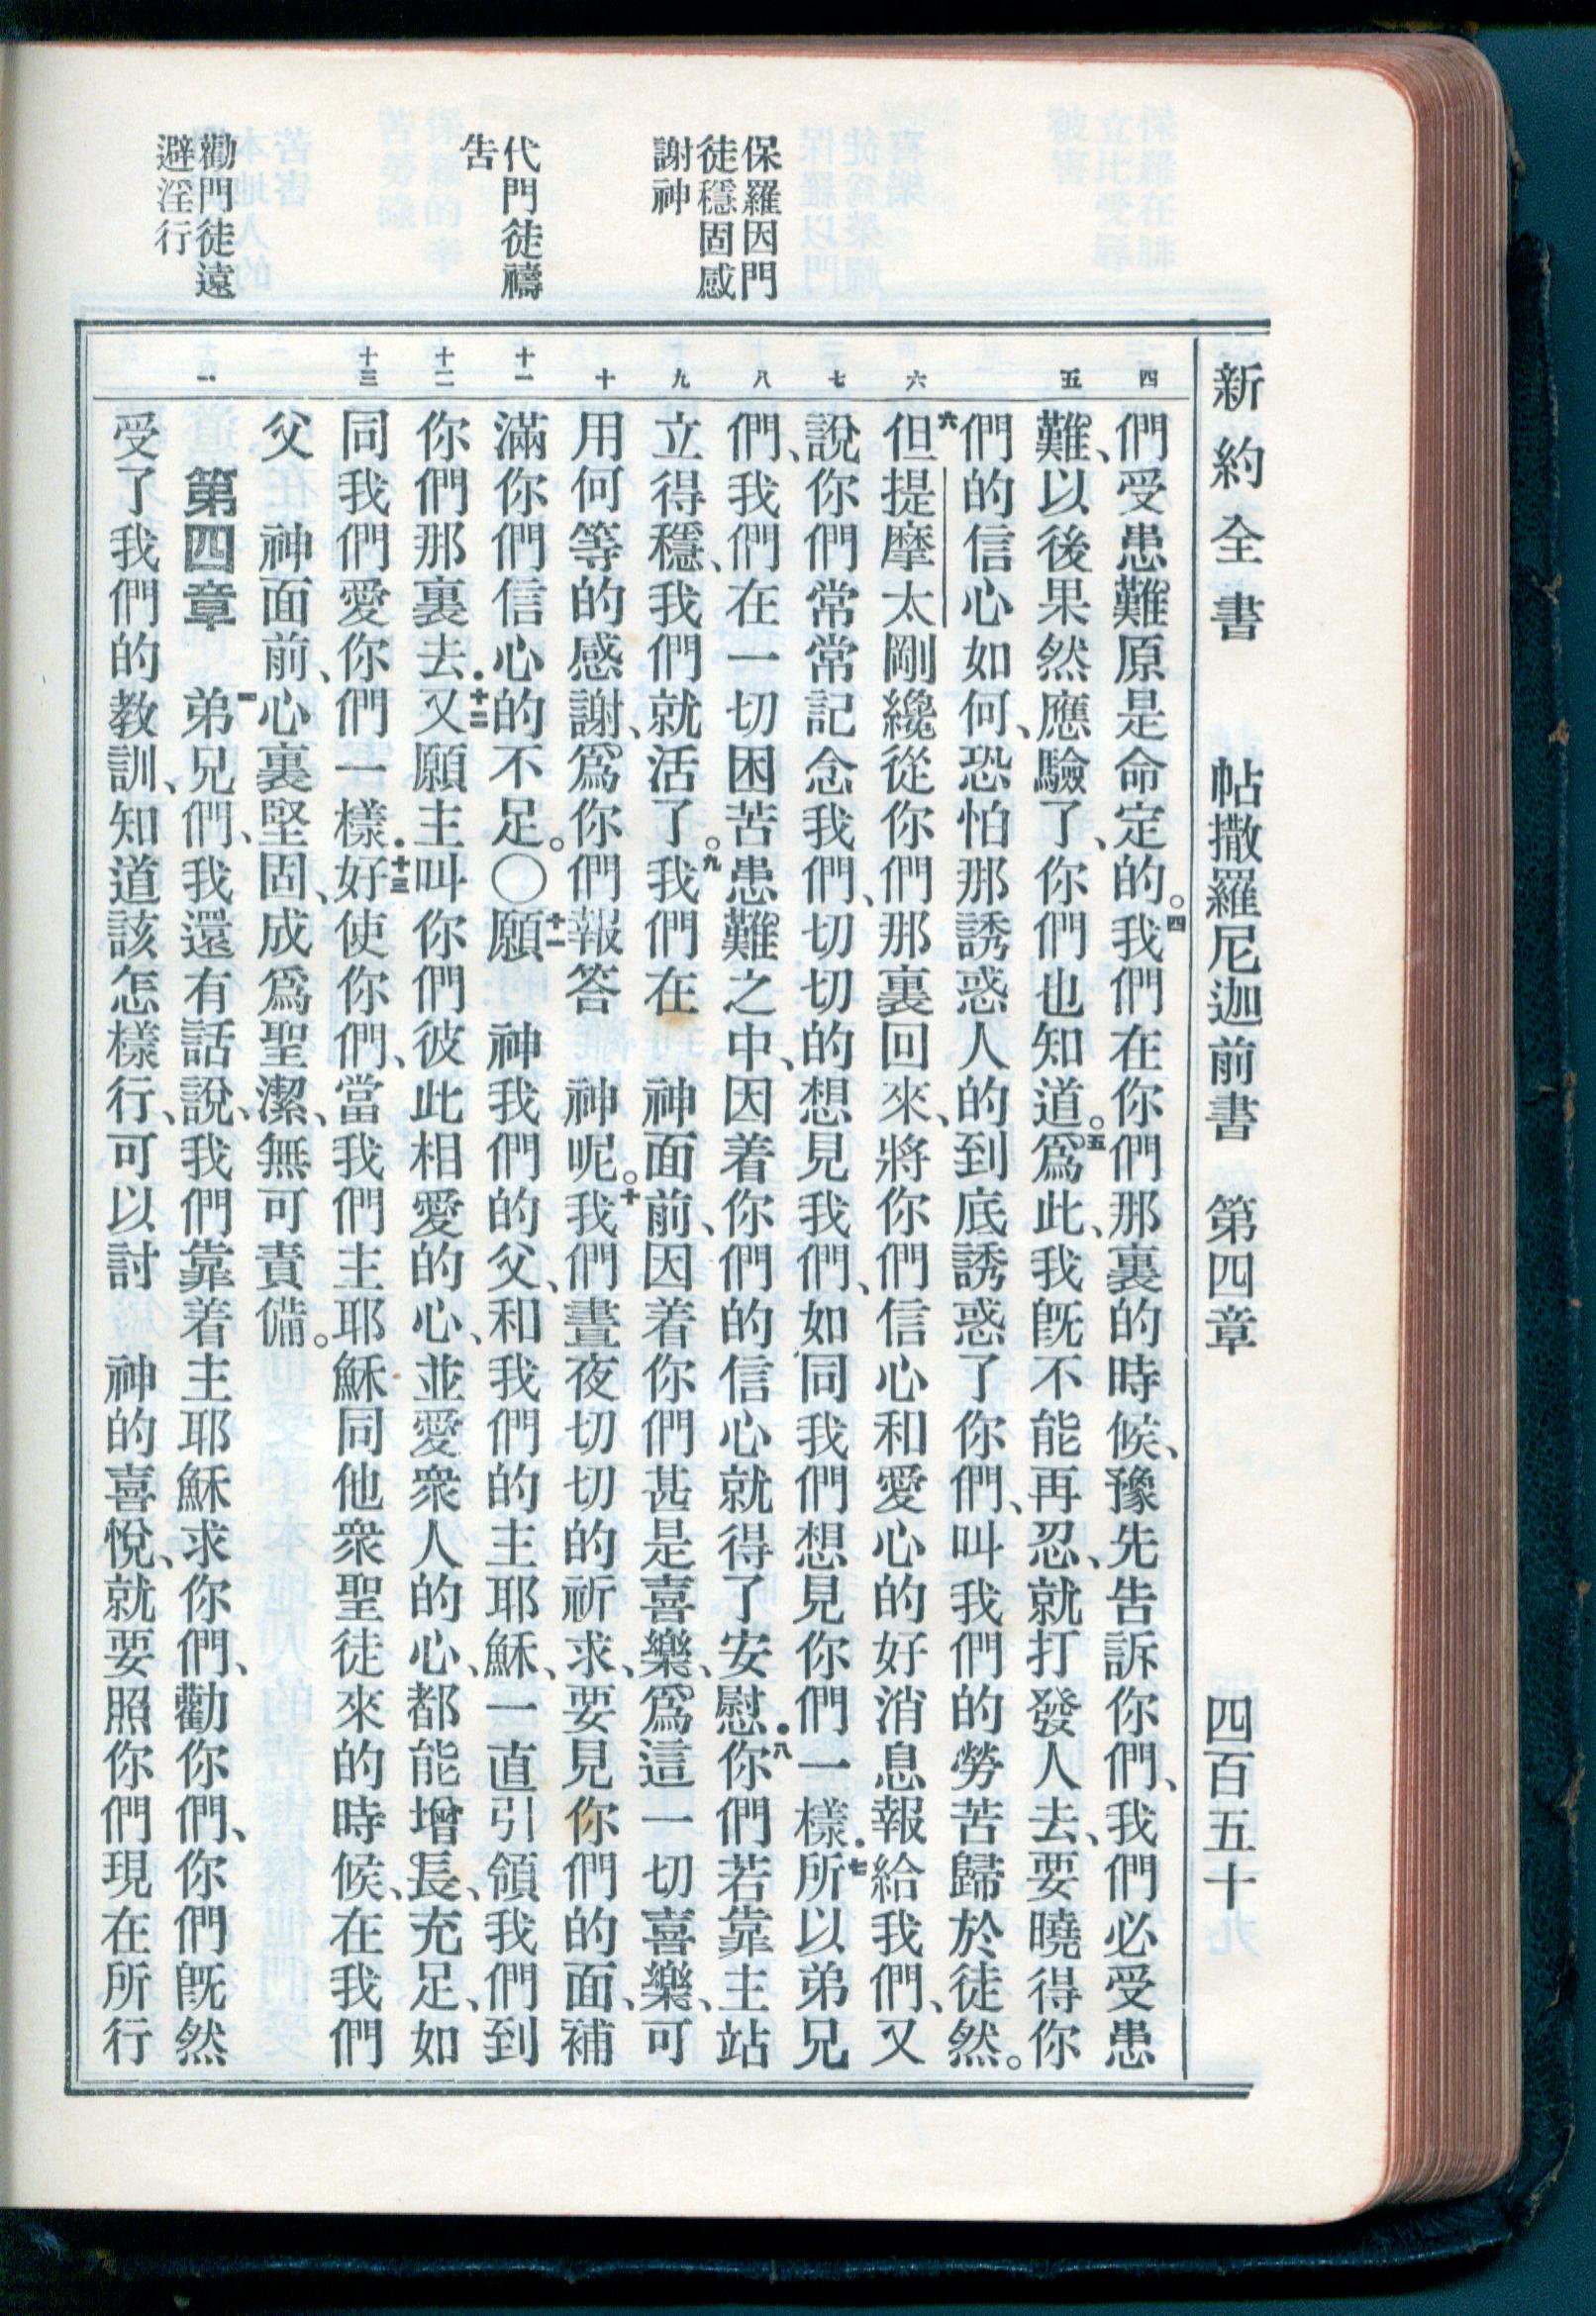 新約全書　帖撒羅尼迦前書　第四章　四百五十
保羅因門
徒穩固感
謝神
代門徒禱
告
勸門徒遠
避淫行
四　五　六　七　八　九　十　十一　十二　十三　一
們受患難原是命定的。四我們在你們那裏的時候、豫先告訴你們、我們必受患
難、以後果然應驗了、你們也知道。五爲此、我旣不能再忍、就打發人去、要曉得你
們的信心如何、恐怕那誘惑人的到底誘惑了你們、叫我們的勞苦歸於徒然。
六但提摩太剛纔從你們那裏回來、將你們信心和愛心的好消息報給我們、又
說你們常常記念我們、切切的想見我們、如同我們想見你們一樣．七所以弟兄
們、我們在一切困苦患難之中、因着你們的信心就得了安慰．八你們若靠主站
立得穩、我們就活了。九我們在　神面前、因着你們甚是喜樂、爲這一切喜樂、可
用何等的感謝、爲你們報答　神呢。十我們晝夜切切的祈求、要見你們的面、補
滿你們信心的不足。〇十一願　神我們的父、和我們的主耶穌、一直引領我們到
你們那裏去．十二又願主叫你們彼此相愛的心、並愛衆人的心、都能增長、充足、如
同我們愛你們一樣．十三好使你們、當我們主耶穌同他衆聖徒來的時候、在我們
父　神面前、心裏堅固、成爲聖潔、無可責備。
第四章　一弟兄們、我還有話說、我們靠着主耶穌求你們、勸你們、你們旣然
受了我們的教訓、知道該怎樣行、可以討　神的喜悅、就要照你們現在所行